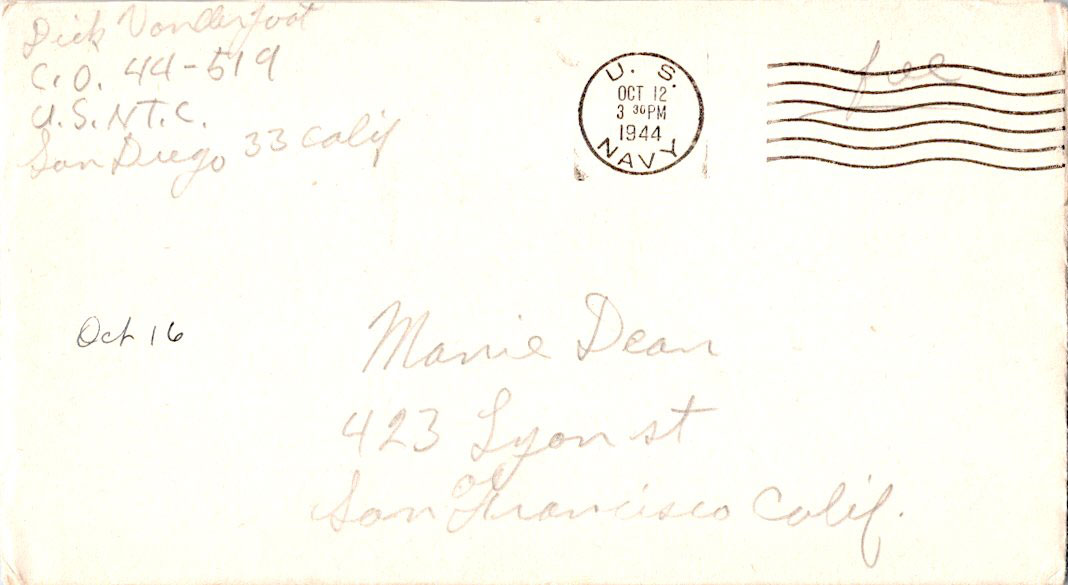 Dick Vonderfoot
C.O. 44-519
U.S.N.T.C.
San Diego 33 Calif
U. S.
OCT 12
3 30 PM
1944
NAVY
free
Oct 16
Marrie Dean
423 Lyon st
San Francisco Calif.